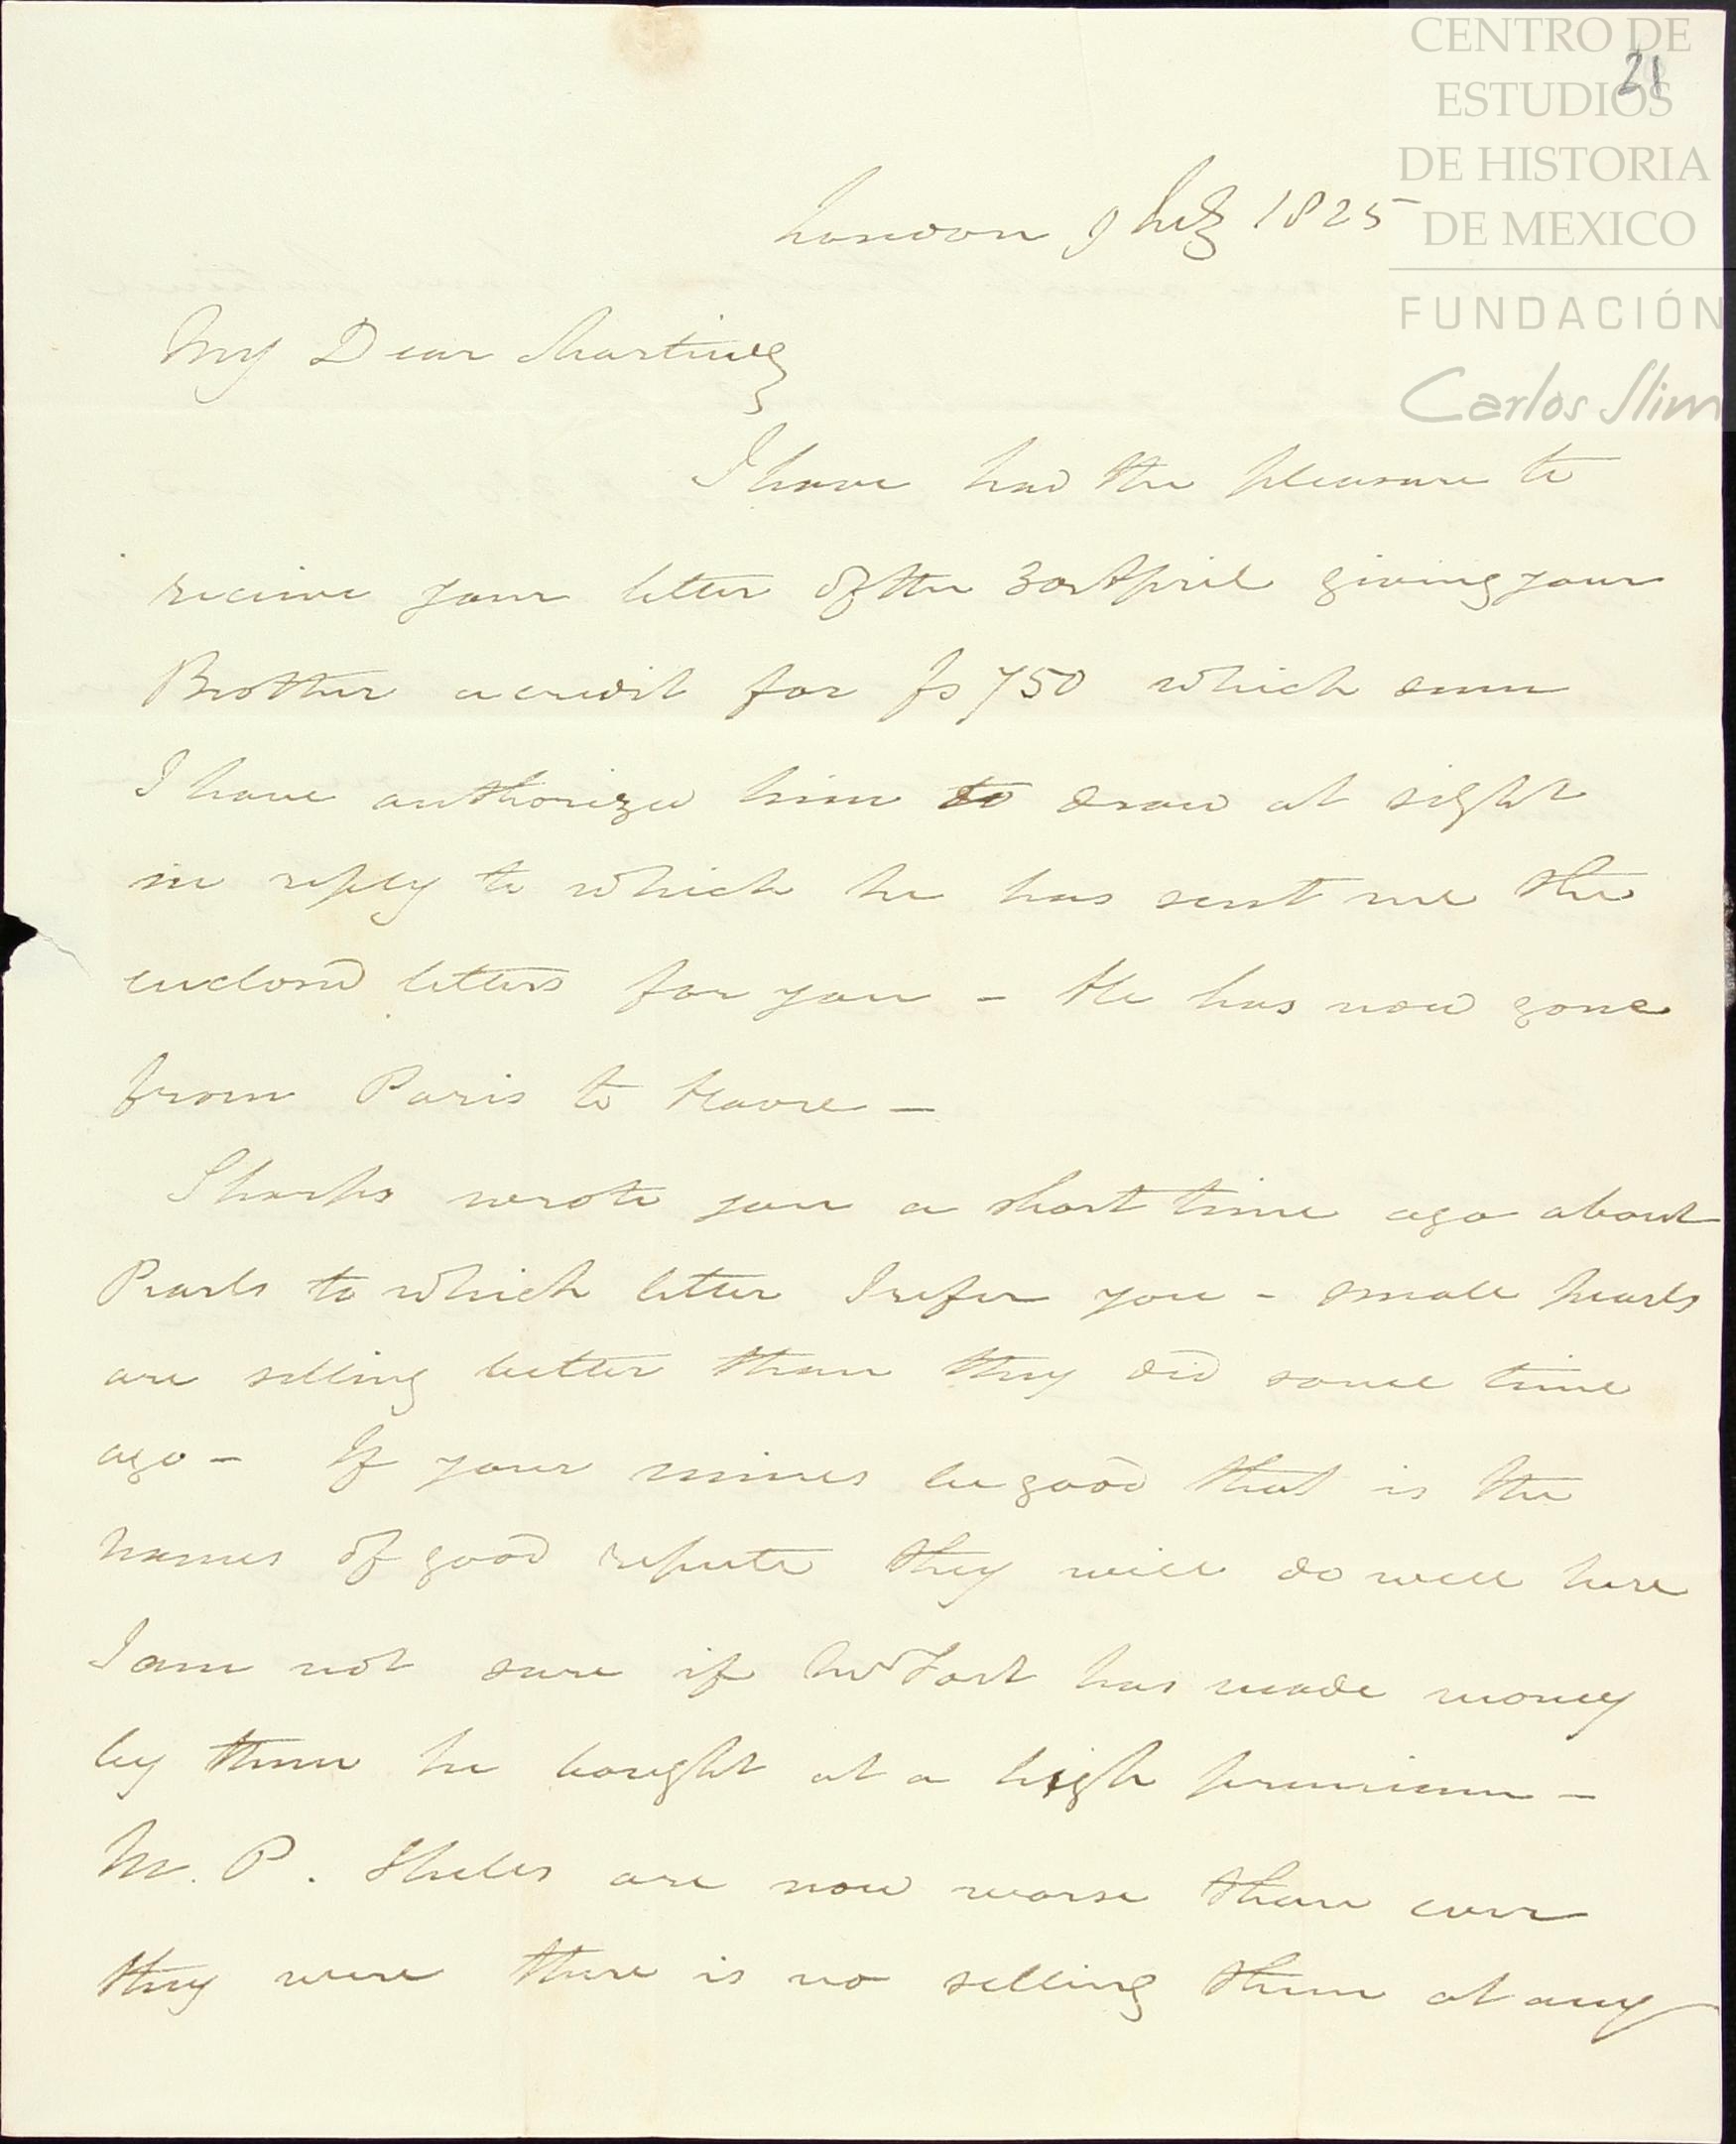 CENTRO DE
ESTUDIOS
DE HISTORIA
DE MEXICO
FUNDACIÓN
Carlos Slim
21
London 9 July 1825
My Dear Martinez
I have had the pleasure to
receive your letter of the 30 April giving your
Brother a credit for fs 750 which sum
I have authorized him to draw at sight
in reply to which he has sent me the
enclosd letters for you - He has now gone
from Paris to Havre -
Sharps wrote you a short time ago about
Pearls to which letter I refer you - small pearls
are selling better than they did some time
ago - If your mines be good that is the
names of good repute they will do well here
I am not sure if has made money
by them he bought at a high premium -
M. P. are now worse than ever
they were there is no selling them at any